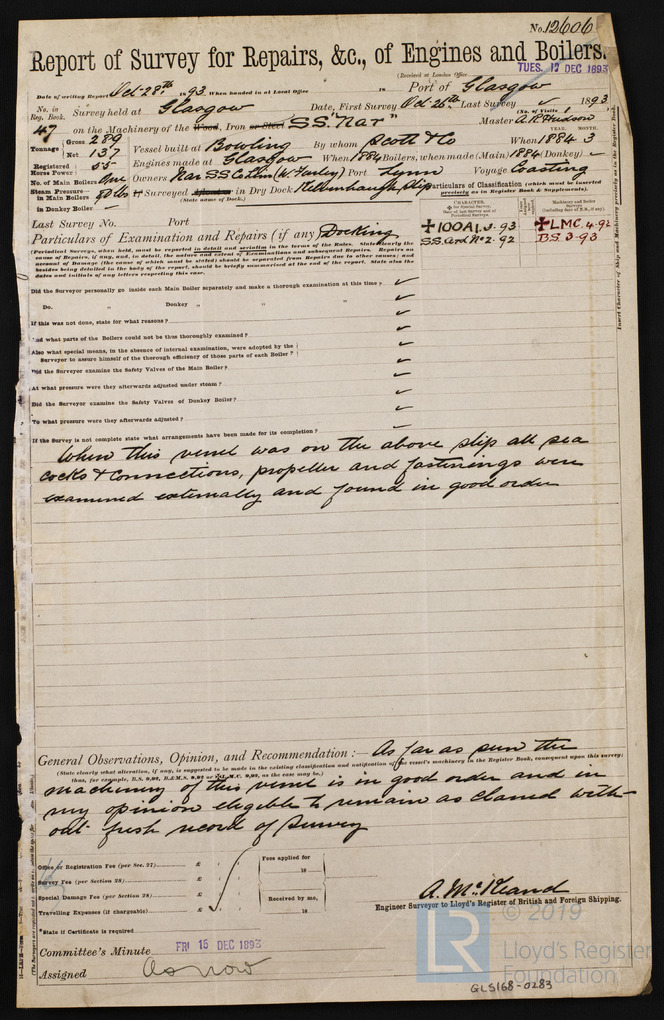 No. 12606
Report of Survey for Repairs, &c., of Engines and Boilers.
(Received at London Office
TUES. 12 DEC 1893
Date of writing Report Oct-28th 1893. When handed in at Local Office 18 Port of Glasgow
No. in Reg. Book. Survey held at Glasgow Date, First Survey Oct-26th Last Survey 1893
(No. of Visits 1)
47 on the Machinery of the Wood, Iron or Steel SS. "Nar" Master A.R. Hudson
Tonnage Gross 289 Vessel built at Bowling By whom Scott & Co When 1884 3
YEAR. MONTH.
Net 137 Engines made at Glasgow When 1884 Boilers, when made (Main) 1884 (Donkey)
Registered Horse Power 55
No. of Main Boilers One Owners Nar SS Co Lim (W. Garley) Port Lynn Voyage Coasting
Steam Pressure in Main Boilers 80 lbs If Surveyed Afloat or in Dry Dock Kelvinhaugh Slip
(State name of Dock.)
in Donkey Boiler
Particulars of Classification (which must be inserted precisely as in Register Book & Supplements).
Last Survey No. Port
CHARACTER.
Machinery and Boiler Surveys
(including date of N.B., if any)
✠100A1.3.93 ✠LMC.4.92
SS.Grd No2.92 B.S.3.93
Particulars of Examination and Repairs (if any) Docking
(Periodical Surveys, when held, must be reported in detail and seriatim in the terms of the Rules. State clearly the
cause of Repairs, if any, and, in detail, the nature and extent of Examinations and subsequent Repairs. Repairs on
account of Damage (the cause of which must be stated) should be separated from Repairs due to other causes; and
besides being detailed in the body of the report, should be briefly summarised at the end of the report. State also the
dates and initials of any letters respecting this case.
Insert Character of Ship and Machinery precisely as in the Register Book
Did the Surveyor personally go inside each Main Boiler separately and make a thorough examination at this time?
Do. " Donkey " " "
If this was not done, state for what reasons?
And what parts of the Boilers could not be thus thoroughly examined?
Also what special means, in the absence of internal examination, were adopted by the
Surveyor to assure himself of the thorough efficiency of those parts of each Boiler?
Did the Surveyor examine the Safety Valves of the Main Boiler?
At what pressure were they afterwards adjusted under steam?
Did the Surveyor examine the Safety Valves of Donkey Boiler?
To what pressure were they afterwards adjusted?
If the Survey is not complete state what arrangements have been made for its completion?
When this vessel was on the above slip all sea
cocks & connections, propeller and fastenings were
examined externally and found in good order
General Observations, Opinion, and Recommendation :— As far as seen the
(State clearly what alteration, if any, is suggested to be made in the existing classification and notification of the vessel's machinery in the Register Book, consequent upon this survey;
thus, for example, B.S. 9,92, B.&M.S. 9,92 or L.M.C. 9,92, as the case may be.)
machinery of this vessel is in good order and in
my opinion eligible to remain as classed with-
out fresh record of Survey
Office or Registration Fee (per Sec. 27) £
Survey Fee (per Section 28) £
Special Damage Fee (per Section 28) £
Travelling Expenses (if chargeable) £
Fees applied for
18
Received by me,
18
A. McKeand
Engineer Surveyor to Lloyd's Register of British and Foreign Shipping.
*State if Certificate is required
Committee's Minute FRI 15 DEC 1893
Assigned As now
© 2019
LR
Lloyd's Register
Foundation
GLS168-0283